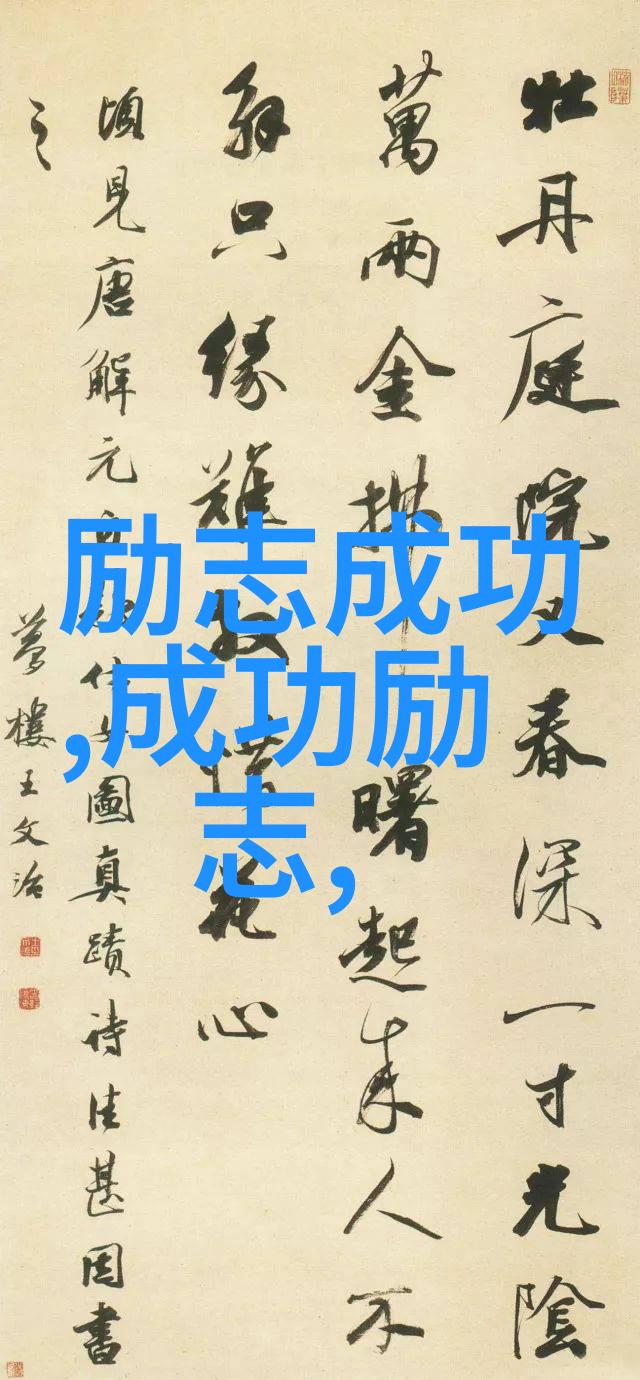 牡丹庭院又春深一寸光陰
萬兩金拂曙起來人不
解只緣難放惜花心
頃見唐解元仕女圖真蹟詩佳甚因書
之
夢樓王文治
励志成功
,成功励
志,